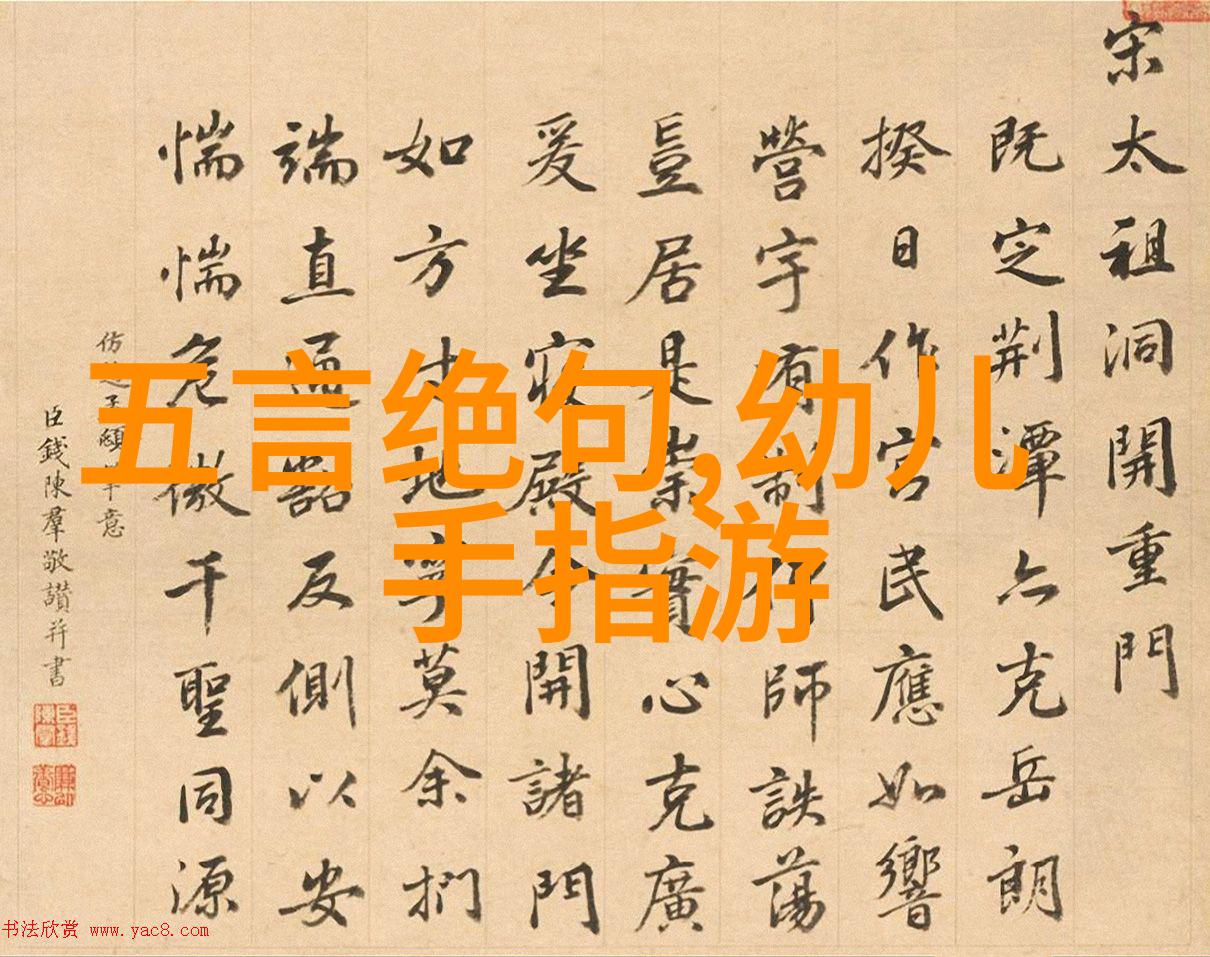 五言绝句,幼儿
手指游
宋太祖洞開重門
既定荆潭六克岳朗
揆日作宮民應如響
營宇有制師詄蕩
豈居是崇實心克廣
爰坐寢殿令開諸門
如方寸地寧莫余捫
端直通豁反側以安
惴惴危微千聖同源
仿意
臣錢陳羣敬讃并書
书法欣赏 www.yac8.com